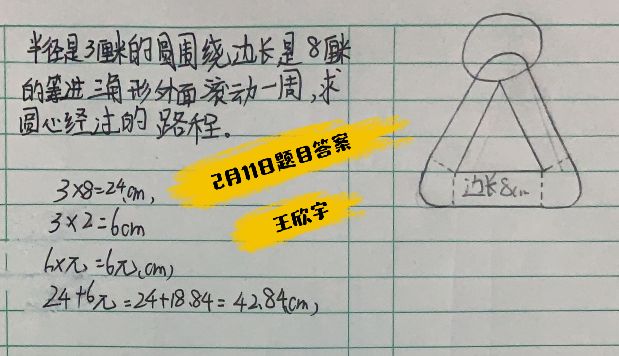 半径是3厘米的圆围绕边长是8厘米
的等边三角形外面滚动一周,求
圆心经过的路程。
2月11日题目答案
王欣宇
3×8=24cm,
3×2=6cm
6×元=6元(cm)
24+6元=24+18.84=42.84(cm)
边长8cm